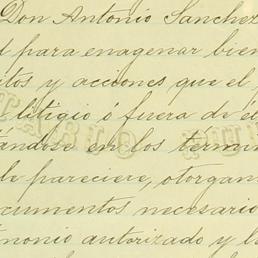 Don Antonio Sanchez
d para enagenar bien
itos y acciones que el
litigio ó fuera de él
ándise en los termin
le pareciere, otorgan
ocumentos necesario
imonio autorizado y l